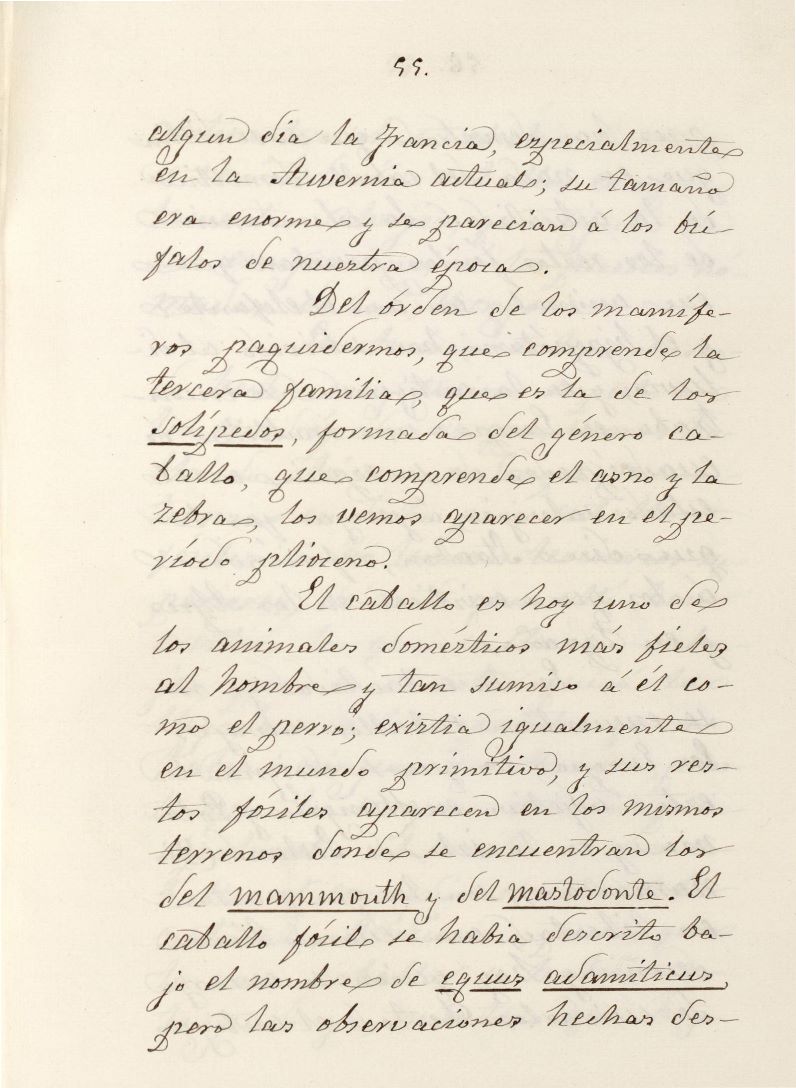 55.
algun dia la Francia, especialmente
en la Auvernia actual; su tamaño
era enorme y se parecian á los bú-
falos de nuestra época.
Del órden de los mamífe-
ros paquidermos, que comprende la
tercera familia, que es la de los
solípedos, formada del género ca-
ballo, que comprende el asno y la
zebra, los vemos aparecer en el pe-
ríodo plioceno.
El caballo es hoy uno de
los animales domésticos más fieles
al hombre y tan sumiso á él co-
mo el perro; existia igualmente
en el mundo primitivo, y sus res-
tos fósiles aparecen en los mismos
terrenos donde se encuentran los
del mammouth y del mastodonte. El
caballo fósil se habia descrito ba-
jo el nombre de equus adamíticus,
pero las observaciones hechas des-